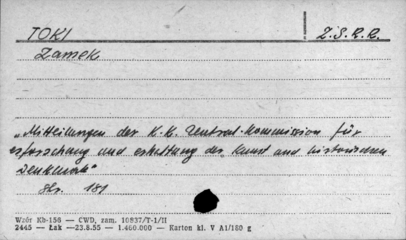 TOKI Z.S.R.R.
Zamek
„Mitteilungen der K.K. Zentral-Kommission für
erforschung und erhaltung der Kunst und historischen
Denkmale"
Str. 181
Wzór Kb-156 — CWD, zam. 10837/T-1/II
2445 — Łak — 23.8.55 — 1.460.000 — Karton kl. V A1/180 g